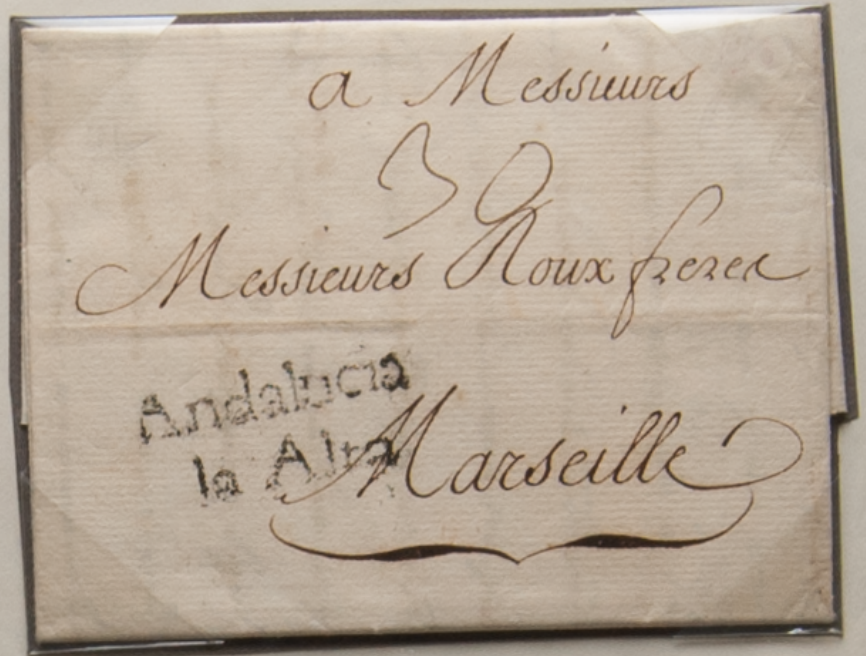 a Messieurs
30
Messieurs Roux freres
Andalucia
la Alta
Marseille